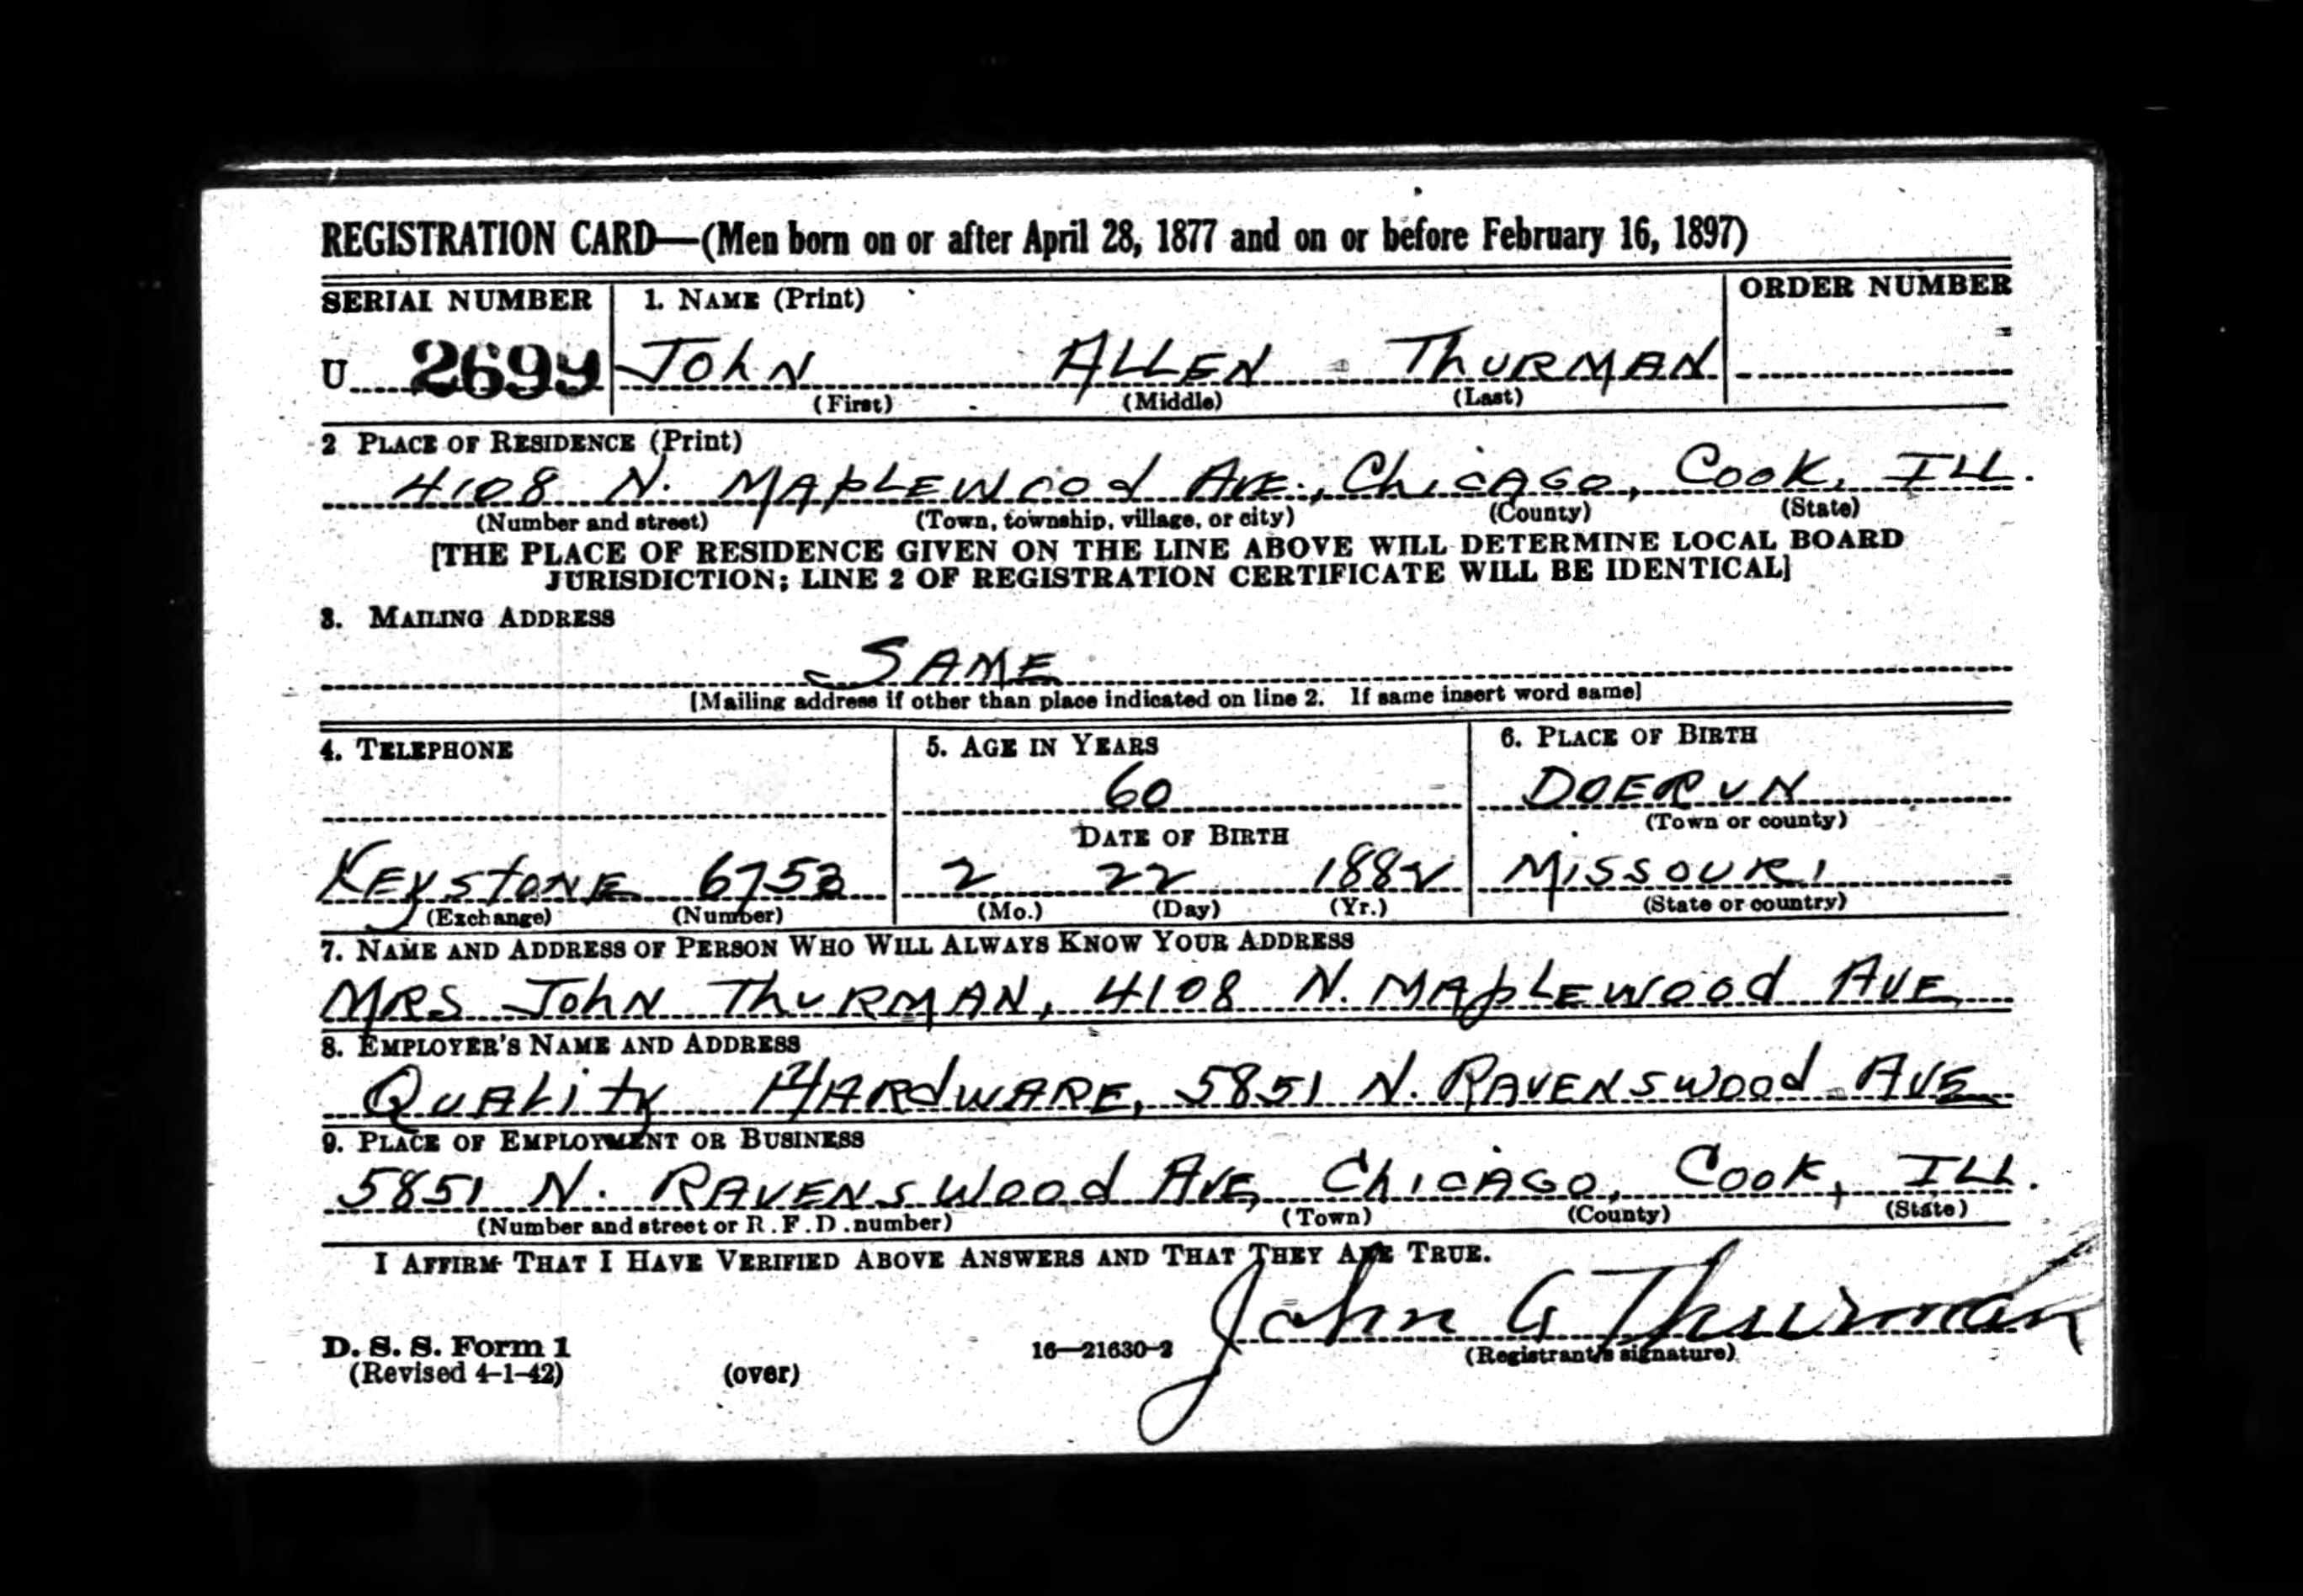 REGISTRATION CARD—(Men born on or after April 28, 1877 and on or before February 16, 1897)
SERIAL NUMBER 1. NAME (Print) ORDER NUMBER
U 2699 JOHN ALLEN THURMAN
(First) (Middle) (Last)
2 PLACE OF RESIDENCE (Print)
4108 N. MAPLEWOOD AVE., CHICAGO, COOK, ILL.
(Number and street) (Town, township, village, or city) (County) (State)
[THE PLACE OF RESIDENCE GIVEN ON THE LINE ABOVE WILL DETERMINE LOCAL BOARD
JURISDICTION; LINE 2 OF REGISTRATION CERTIFICATE WILL BE IDENTICAL]
3. MAILING ADDRESS
SAME
[Mailing address if other than place indicated on line 2. If same insert word same]
4. TELEPHONE 5. AGE IN YEARS 6. PLACE OF BIRTH
60 DOERUN
DATE OF BIRTH (Town or county)
KEYSTONE 6753 2 22 1882 MISSOURI
(Exchange) (Number) (Mo.) (Day) (Yr.) (State or country)
7. NAME AND ADDRESS OF PERSON WHO WILL ALWAYS KNOW YOUR ADDRESS
MRS JOHN THURMAN, 4108 N. MAPLEWOOD AVE
8. EMPLOYER'S NAME AND ADDRESS
QUALITY HARDWARE, 5851 N. RAVENSWOOD AVE
9. PLACE OF EMPLOYMENT OR BUSINESS
5851 N. RAVENSWOOD AVE CHICAGO, COOK, ILL.
(Number and street or R. F. D. number) (Town) (County) (State)
I AFFIRM THAT I HAVE VERIFIED ABOVE ANSWERS AND THAT THEY ARE TRUE.
John A Thurman
D. S. S. Form 1 16—21630-2 (Registrant's signature)
(Revised 4-1-42) (over)